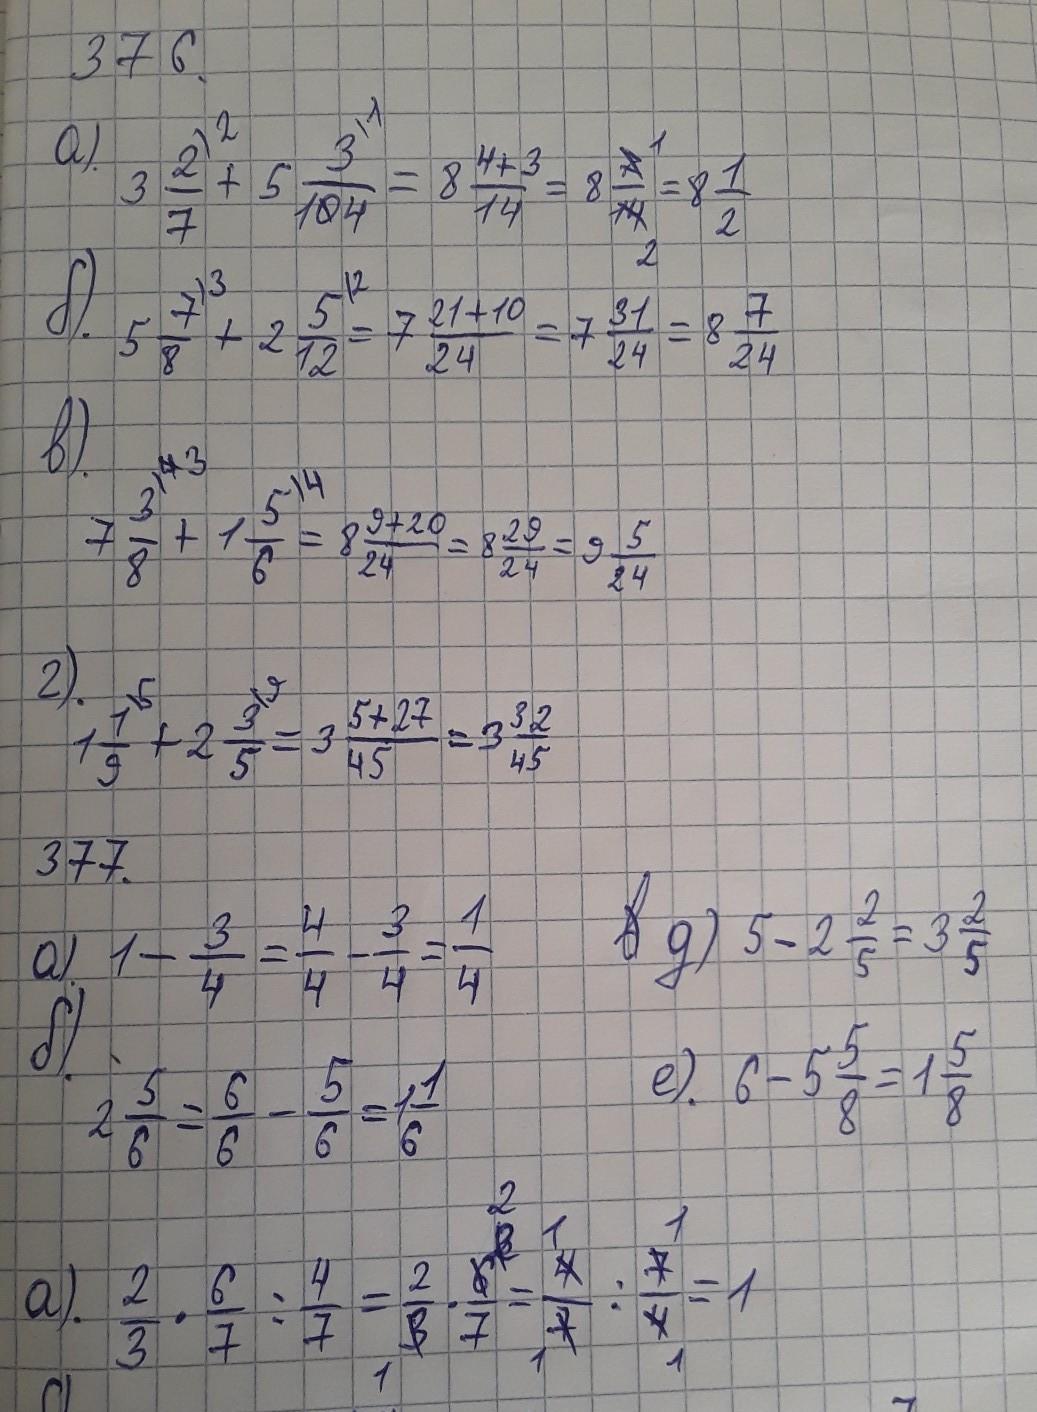 376.
а). 3 2/7 \2 + 5 3/14 \1 = 8 4+3/14 = 8 7/14 = 8 1/2
б). 5 7/8 \3 + 2 5/12 \2 = 7 21+10/24 = 7 31/24 = 8 7/24
в).
7 3/8 \3 + 1 5/6 \4 = 8 9+20/24 = 8 29/24 = 9 5/24
г).
1 1/9 \5 + 2 3/5 \9 = 3 5+27/45 = 3 32/45
377.
а). 1 - 3/4 = 4/4 - 3/4 = 1/4
д) 5 - 2 2/5 = 3 2/5
б).
2 5/6 = 6/6 - 5/6 = 1 1/6
е). 6 - 5 5/8 = 1 5/8
а). 2/3 · 6/7 : 4/7 = 2/3 · 6/7 = 4/7 : 7/4 = 1